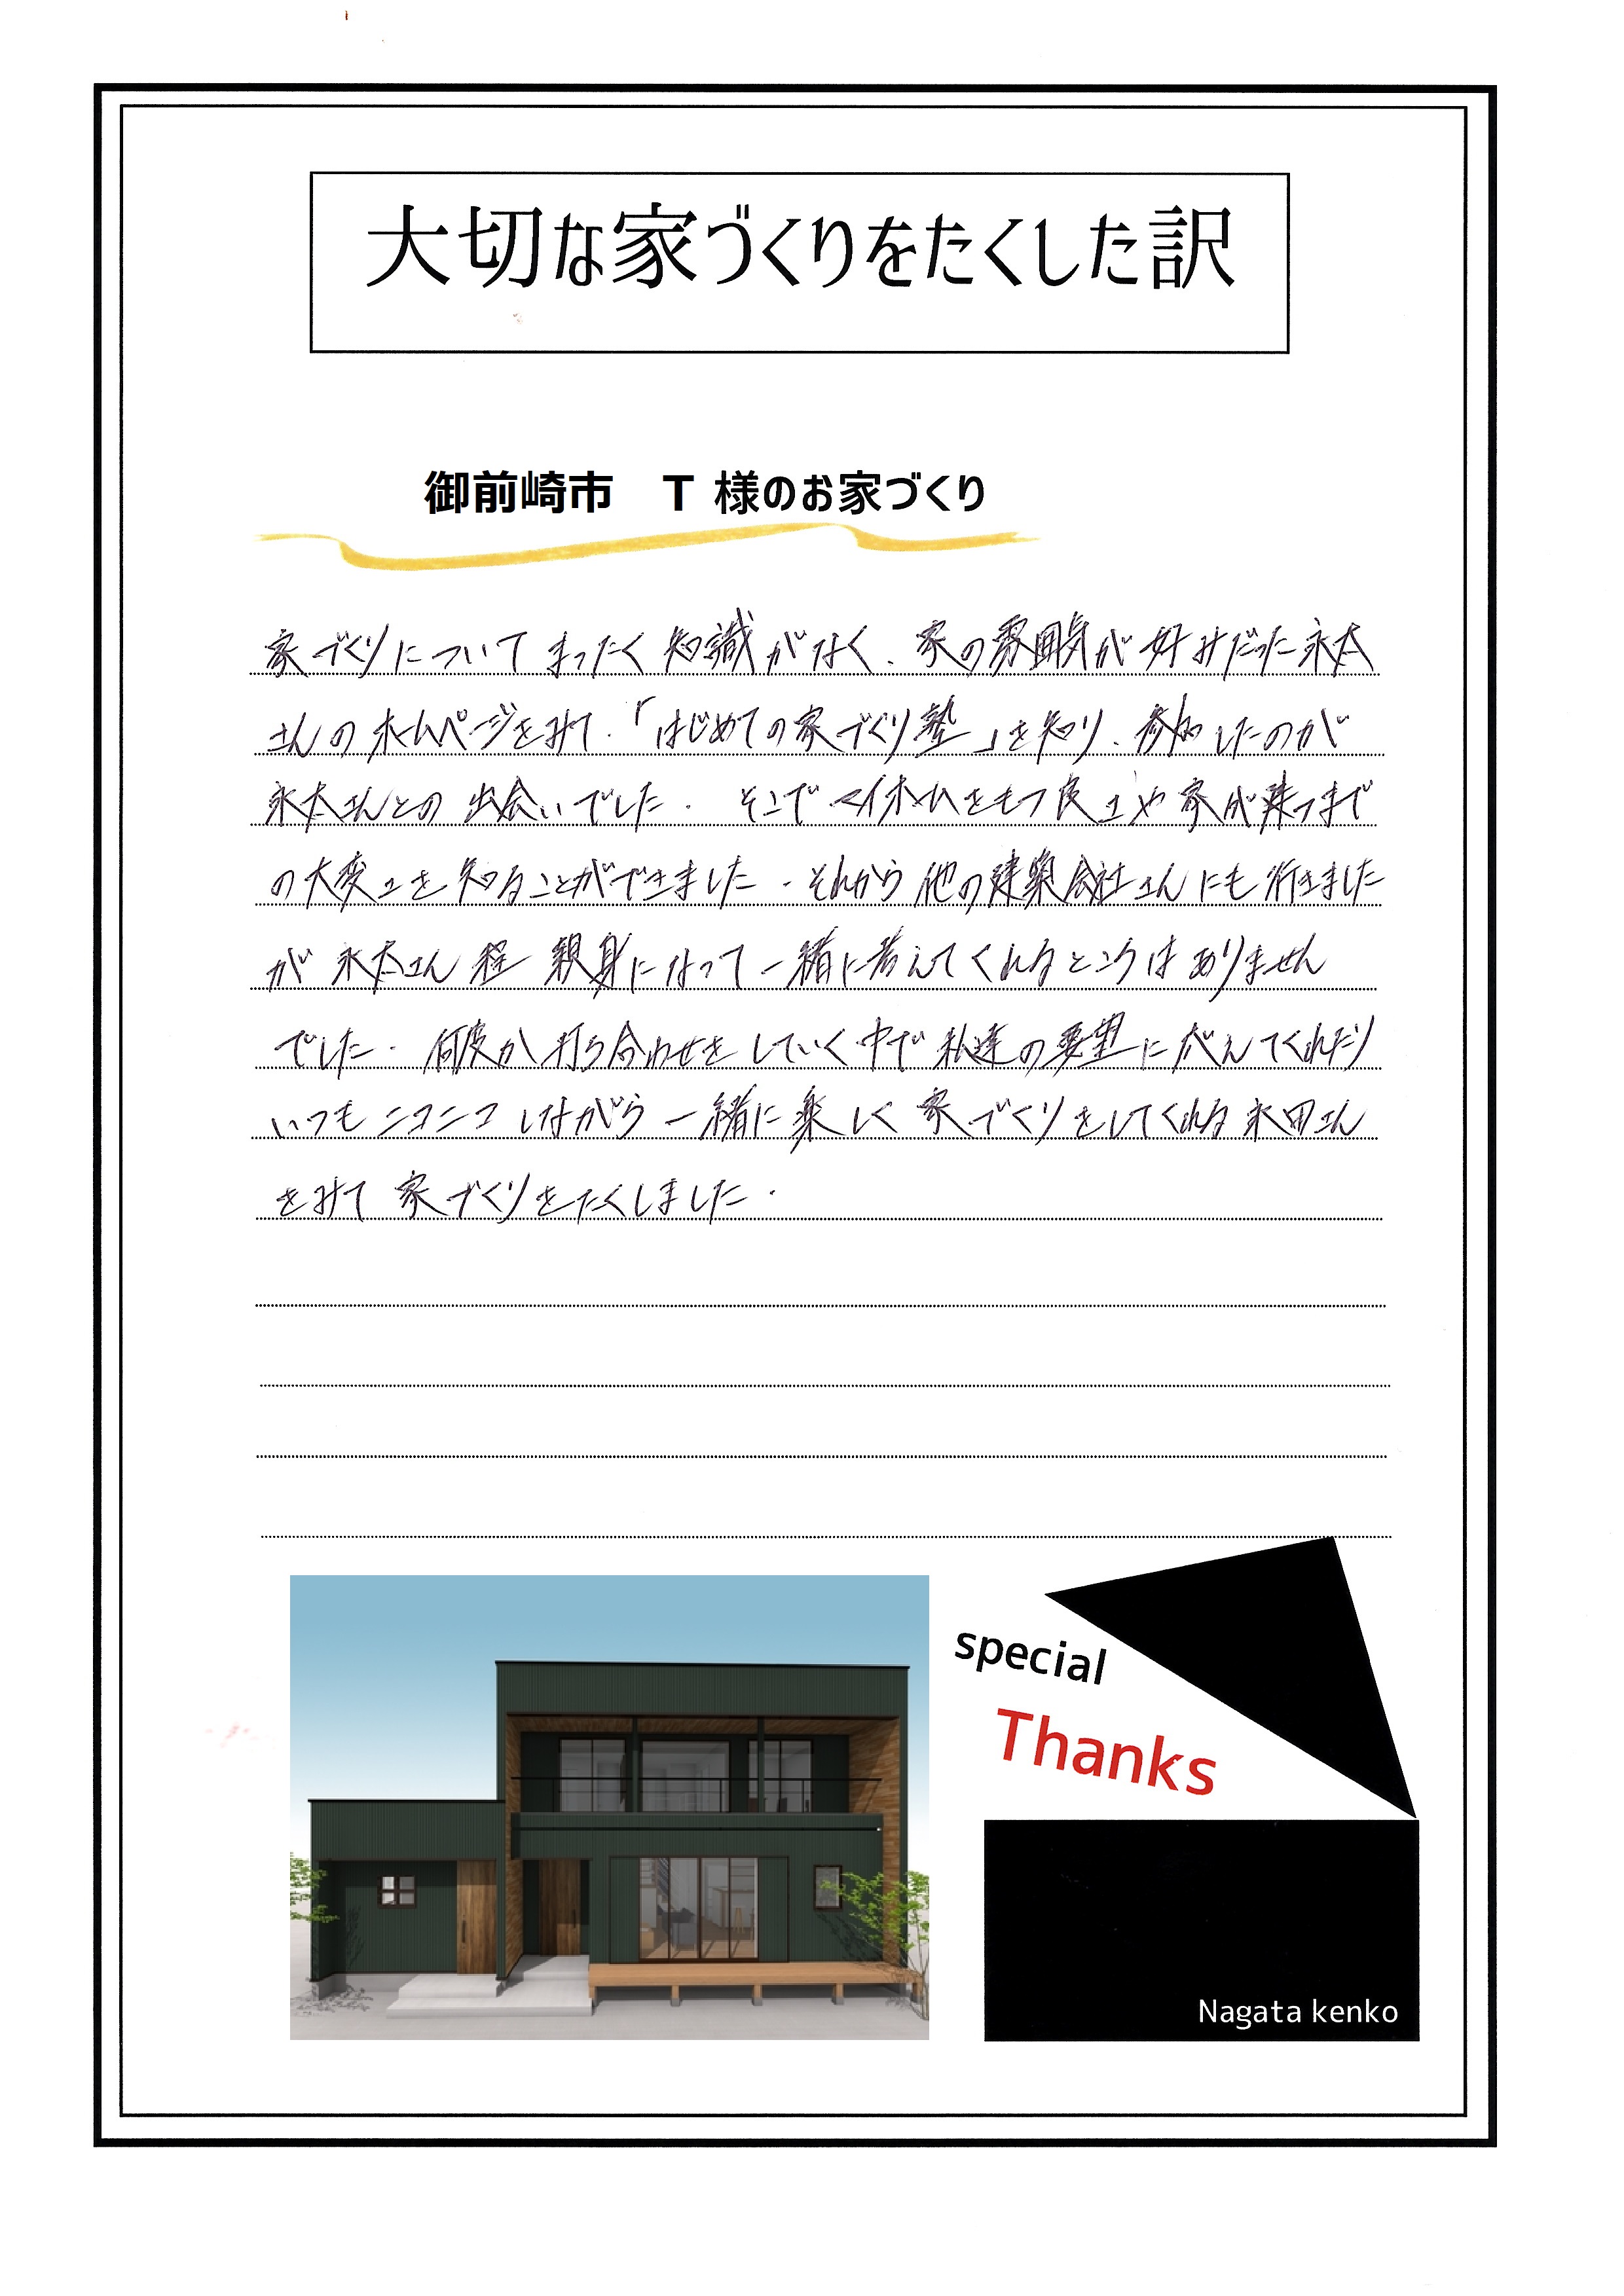 大切な家づくりをたくした訳
御前崎市　T 様のお家づくり
家づくりについてまったく知識がなく、家の雰囲気が好みだった永太
さんのホームページをみて、「はじめての家づくり塾」を知り、参加したのが
永太さんとの出会いでした。そこでマイホームをもつ良さや家が建つまで
の大変さを知ることができました。それから他の建築会社さんにも行きました
が永太さん程親身になって一緒に考えてくれるところはありません
でした。何度か打ち合わせをしていく中で私達の要望に応えてくれたり
いつもニコニコしながら一緒に楽しく家づくりをしてくれる永田さん
をみて家づくりをたくしました。
special
Thanks
Nagata kenko